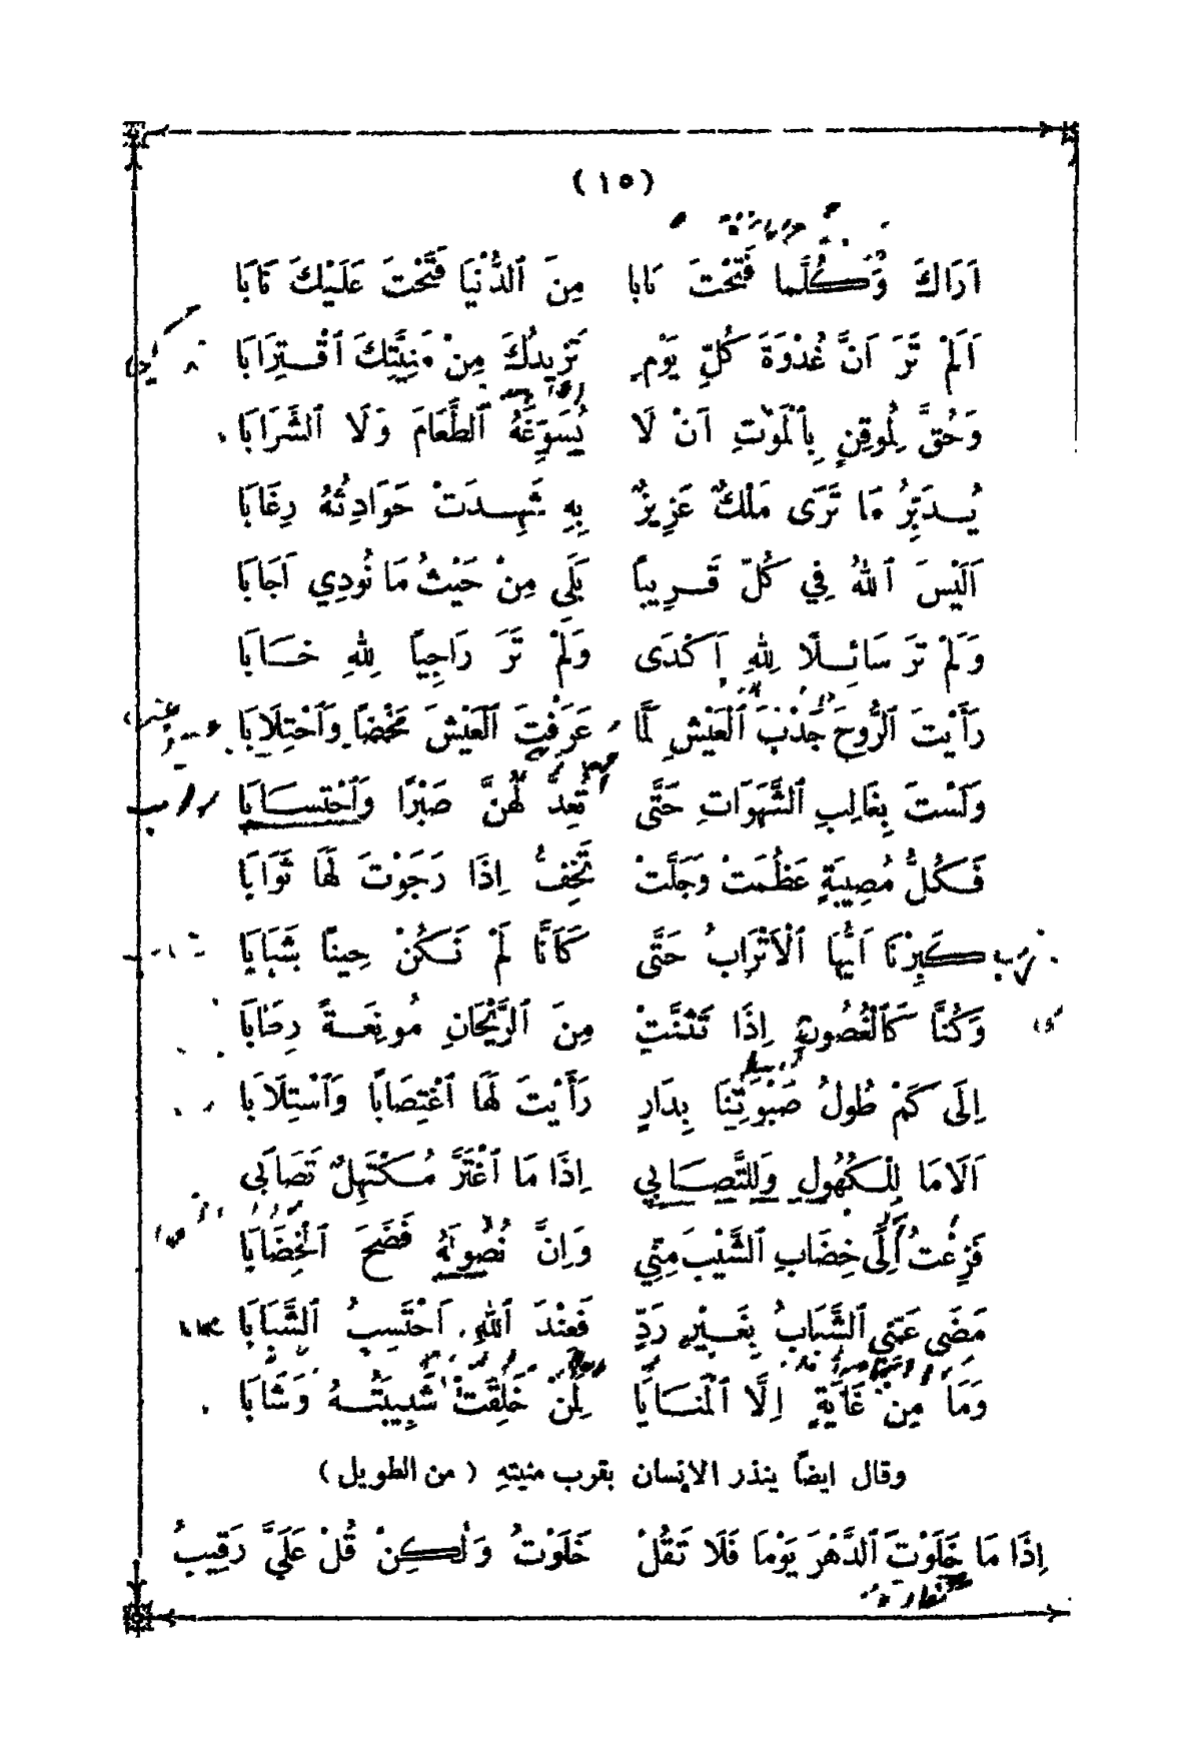 (١٥)
اَرَاكَ وَكُلَّما فَتَحْتَ بَابا مِنَ ٱلدُّنْيَا فَتَحْتَ عَلَيْكَ بَابَا
اَلَمْ تَرَ اَنَّ غُدْوَةَ كُلِّ يَوْمٍ تَزِيدُكَ مِنْ مَنِيَّتِكَ ٱقْتِرَابَا
وَحُقَّ لِمُوقِنٍ بِٱلْمَوْتِ اَنْ لَا يُسَوِّغَهُ ٱلطَّعَامَ وَلَا ٱلشَّرَابَا
يُدَبِّرُ مَا تَرَى مَلْكٌ عَزِيزٌ بِهِ شَهِدَتْ حَوَادِثُهُ رِغَابَا
اَلَيْسَ ٱللهُ فِي كُلٍّ قَرِيبًا بَلَى مِنْ حَيْثُ مَا نُودِي اَجَابَا
وَلَمْ تَرَ سَائِلًا لِلهِ اَكْدَى وَلَمْ تَرَ رَاجِيًا لِلهِ خَابَا
رَأَيْتَ ٱلرُّوحَ جَدْبَ ٱلْعَيْشِ لَمَّا عَرَفْتَ ٱلْعَيْشَ مَخْضًا وَٱحْتِلَابَا
وَلَسْتَ بِغَالِبِ ٱلشَّهَوَاتِ حَتَّى تُعِدَّ لَهُنَّ صَبْرًا وَٱحْتِسَابَا
فَكُلُّ مُصِيبَةٍ عَظُمَتْ وَجَلَّتْ تَخِفُّ اِذَا رَجَوْتَ لَهَا ثَوَابَا
كَبِرْنَا اَيُّهَا ٱلْاَتْرَابُ حَتَّى كَاَنَّا لَمْ نَكُنْ حِينًا شَبَابَا
وَكُنَّا كَٱلْغُصُونِ اِذَا تَثَنَّتْ مِنَ ٱلرَّيْحَانِ مُونِعَةً رِطَابَا
اِلَى كَمْ طُولُ صَبْوَتِنَا بِدَارٍ رَأَيْتَ لَهَا ٱغْتِصَابًا وَٱسْتِلَابَا
اَلَا مَا لِلْكُهُولِ وَلِلتَّصَابِي اِذَا مَا ٱغْتَرَّ مُكْتَهِلٌ تَصَابَى
فَزِعْتُ اِلَى خِضَابِ ٱلشَّيْبِ مِنِّي وَاِنَّ نُصُولَهُ فَضَحَ ٱلْخِضَابَا
مَضَى عَنِّي ٱلشَّبَابُ بِغَيْرِ رَدٍّ فَعِنْدَ ٱللهِ اَحْتَسِبُ ٱلشَّبَابَا
وَمَا مِنْ غَايَةٍ اِلَّا ٱلْمَنَايَا لِمَنْ خَلِقَتْ شَبِيبَتُهُ وَشَابَا
وقال ايضًا ينذر الانسان بقرب منيتهِ (من الطويل)
اِذَا مَا خَلَوْتَ ٱلدَّهْرَ يَوْمًا فَلَا تَقُلْ خَلَوْتُ وَلٰكِنْ قُلْ عَلَيَّ رَقِيبُ